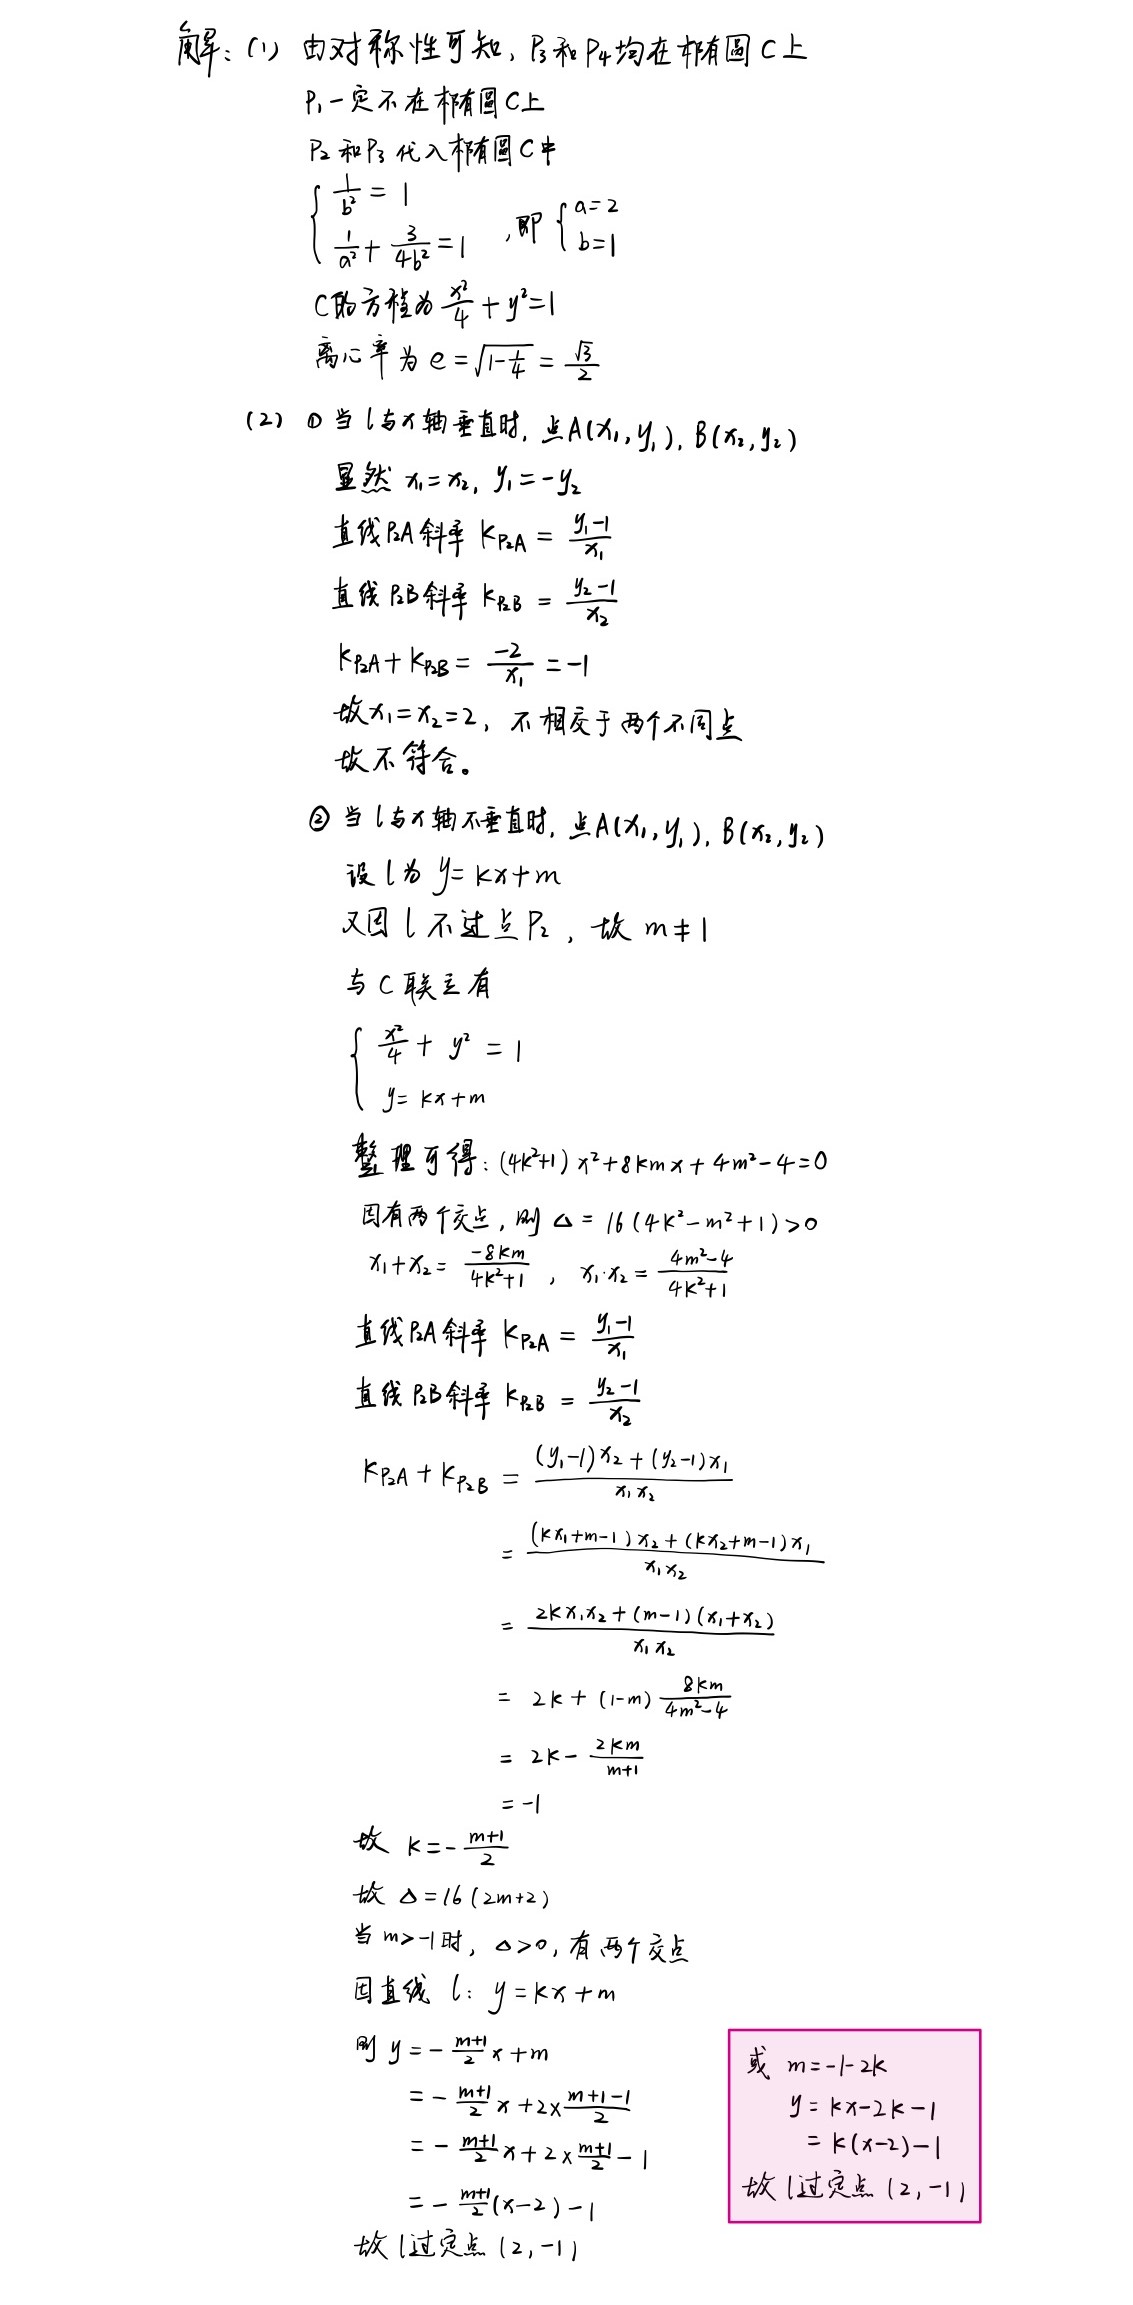 解：(1) 由对称性可知，P₃和P₄均在椭圆C上
P₁一定不在椭圆C上
P₂和P₃代入椭圆C中
{ 1/b² = 1
1/a² + 3/4b² = 1 ，即 { a=2 b=1
C的方程为 x²/4 + y² = 1
离心率为 e = √(1-1/4) = √3/2
(2) ① 当l与x轴垂直时，点A(x₁,y₁), B(x₂,y₂)
显然 x₁=x₂, y₁=-y₂
直线P₂A斜率 k_{P₂A} = (y₁-1)/x₁
直线P₂B斜率 k_{P₂B} = (y₂-1)/x₂
k_{P₂A} + k_{P₂B} = -2/x₁ = -1
故x₁=x₂=2，不相交于两个不同点
故不符合。
② 当l与x轴不垂直时，点A(x₁,y₁), B(x₂,y₂)
设l为 y=kx+m
又因l不过点P₂，故 m≠1
与C联立有
{ x²/4 + y² = 1
y=kx+m
整理可得：(4k²+1)x²+8kmx+4m²-4=0
因有两个交点，则 Δ=16(4k²-m²+1)>0
x₁+x₂ = -8km/(4k²+1) ， x₁·x₂ = (4m²-4)/(4k²+1)
直线P₂A斜率 k_{P₂A} = (y₁-1)/x₁
直线P₂B斜率 k_{P₂B} = (y₂-1)/x₂
k_{P₂A} + k_{P₂B} = ((y₁-1)x₂+(y₂-1)x₁)/(x₁x₂)
= ((kx₁+m-1)x₂+(kx₂+m-1)x₁)/(x₁x₂)
= (2kx₁x₂+(m-1)(x₁+x₂))/(x₁x₂)
= 2k + (1-m) 8km/(4m²-4)
= 2k - 2km/(m+1)
= -1
故 k=-(m+1)/2
故 Δ=16(2m+2)
当m>-1时，Δ>0，有两个交点
因直线 l：y=kx+m
则 y = -(m+1)/2 x+m
= -(m+1)/2 x+2×(m+1-1)/2
= -(m+1)/2 x+2×(m+1)/2 -1
= -(m+1)/2 (x-2)-1
故l过定点(2,-1)
或 m=-1-2k
y=kx-2k-1
=k(x-2)-1
故l过定点(2,-1)